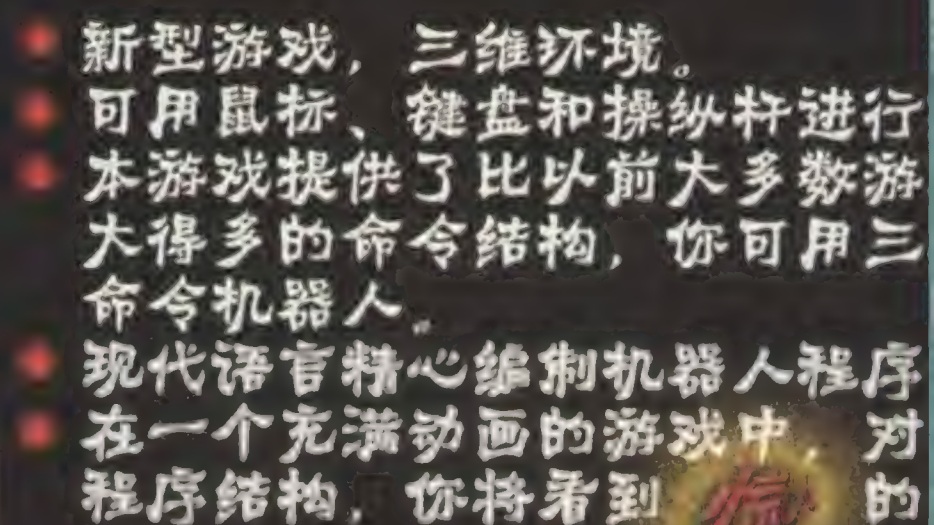 新型游戏，三维环境。
可用鼠标、键盘和操纵杆进行
本游戏提供了比以前大多数游
大得多的命令结构，你可用三
命令机器人。
现代语言精心编制机器人程序
在一个充满动画的游戏中，对
程序结构，你将看到 的